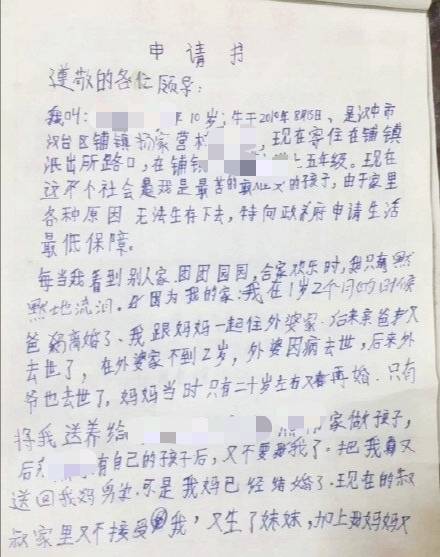 申请书
遵敬的各位领导:
我叫: 年10岁;生于2010年8月15日、是汉中市
汉台区铺镇杨家营村 ,现在寄住在铺镇
派出所路口,在铺镇 上五年级。现在
这个社会是我是最苦的 的孩子,由于家里
各种原因无法生存下去,特向政府申请生活
最低保障。
每当我看到别人家团团园园,合家欢乐时,我只有默
默地流泪。因为我的家:我在1岁2个月的时候
爸妈离婚了、我跟妈妈一起住外婆家.后来亲爸又
去世了,在外婆家不到2岁,外婆因病去世,后来外
爷也去世了,妈妈当时只有二十岁左右又再婚.只有
将我送养给 家做孩子,
后来 有自己的孩子后,又不要我了.把我又
送回我妈身边.可是我妈已经结婚了.现在的叔
叔家里又不接受我,又生了妹妹,加上妈妈又